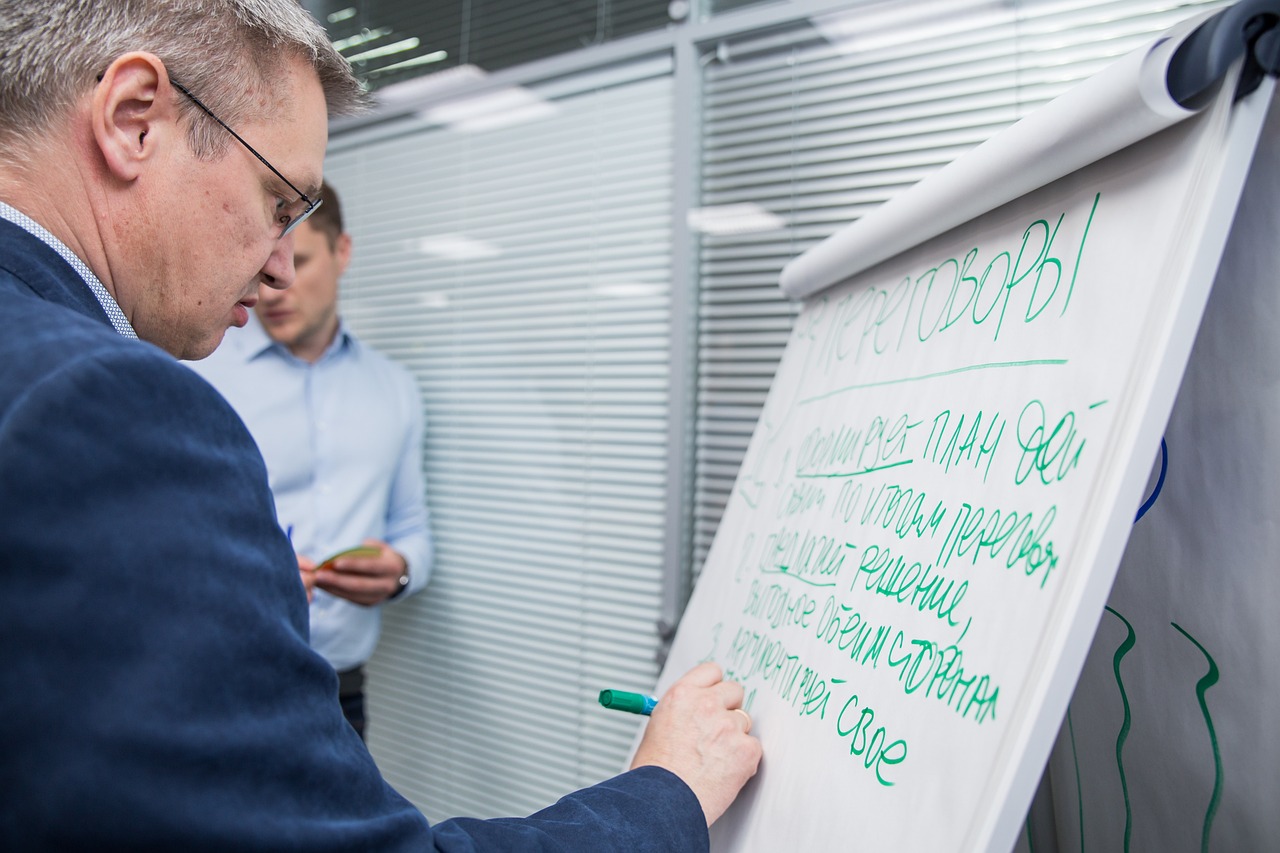 ПЕРЕГОВОРЫ
1. формирует ПЛАН дей
ствий по итогам перегово
2. предлагает решение,
выгодное обеим сторонам
3. Аргументирует свое